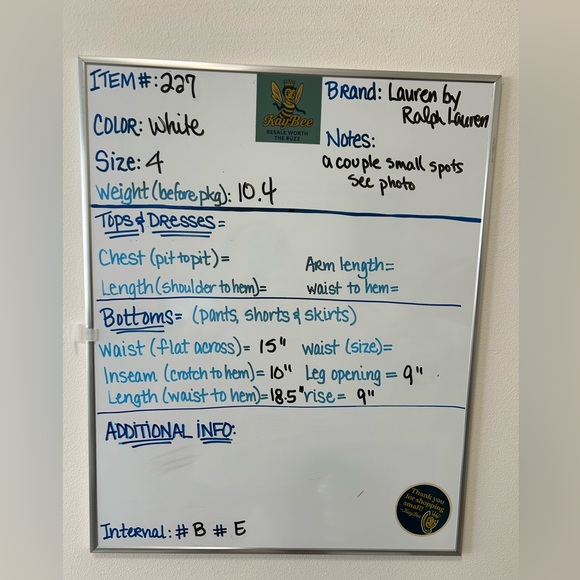 ITEM#: 227
COLOR: White
Size: 4
Weight (before pkg): 10.4
KayBee
RESALE WORTH
THE BUZZ
Brand: Lauren by
Ralph Lauren
Notes:
a couple small spots
see photo
TOPS & DRESSES=
Chest (pit to pit)=
Arm length=
Length (shoulder to hem)=
waist to hem=
Bottoms= (pants, shorts & skirts)
Waist (flat across)= 15" waist (size)=
Inseam (crotch to hem)= 10" Leg opening = 9"
Length (waist to hem)= 18.5" rise= 9"
ADDITIONAL INFO:
Thank you
for shopping
small!
Internal: # B # E